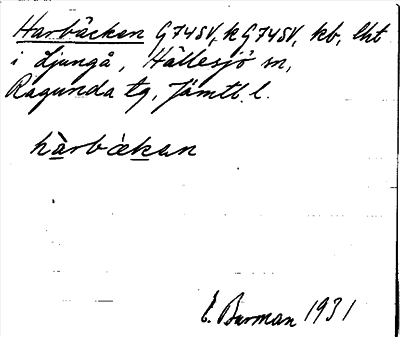 Harbäcken G74SV, k G74SV, kb, lht
i Ljungå, Hällesjö sn,
Ragunda tg, Jämtl. l.
hàrbækan
E. Burman 1931